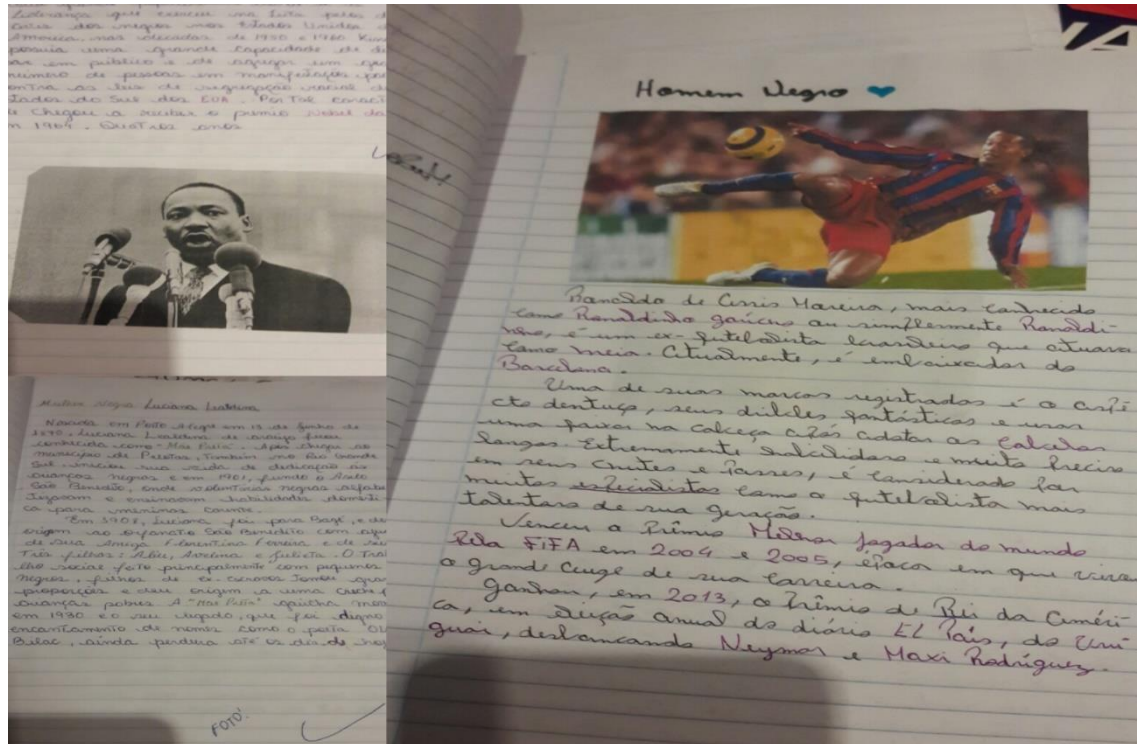 Liderança que exerceu na luta pelos d
civis dos negros nos Estados Unidos d
América, nas décadas de 1950 e 1960 King
possuia uma grande capacidade de di
ar em público e de agregar um gra
número de pessoas em manifestações pac
ontra as leis de segregação racial d
tados do Sul dos EUA. Por Tal caract
chegou a receber o premio Nobel da
m 1964. Quatros anos
Mulher Negra Luciana Lealdina
Nascida em Porto Alegre em 13 de Junho de
1870, Luciana Lealdina de Araújo ficou
conhecida como "Mãe Preta". Após chegar ao
município de Pelotas, Também no Rio Grande
Sul, iniciou sua vida de dedicação às
crianças negras e em 1901, fundo o Asilo
São Benedito, onde voluntárias negras alfabe
Tizavam e ensinavam habilidades domésti
ca para meninas
Em 1908, Luciana foi para Bagé, e deu
origem ao orfanato São Benedito com
de sua amiga Florentina Ferreira e de su
Três filhas: Alice, Avelina e Julieta. O Tra
lho social feito principalmente com pequenos
negros, filhos de ex-escravos Tomou gra
proporções e deu origem a uma creche p
crianças pobres. A "Mãe Preta" gaúcha mor
em 1930 e o seu legado, que foi digno
encantamento de nomes como o poeta Ol
Bilac, ainda perdura até os dis de hoj
FOTO!
Homem Negro
Ronaldo de Assis Moreira, mais conhecido
como Ronaldinho gaúcho ou simplesmente Ronaldi-
nho, é um ex-futebolista brasileiro que atuava
como meia. Atualmente, é embaixador do
Barcelona.
Uma de suas marcas registradas é o aspé
cto dentuço, seus dribles fantásticos e usar
uma faixa na cabeça após adotar os cabelos
longos. Extremamente habilidoso e muito preciso
em seus chutes e passes, é considerado por
muitos especialistas como o futebolista mais
talentoso de sua geração.
Venceu o Prêmio Melhor jogador do mundo
Pela FIFA em 2004 e 2005, época em que viveu
o grande auge de sua carreira.
Ganhou, em 2013, o Prêmio de Rei da Améri-
ca, em eleição anual do diário EL País, do Uru-
guai, desbancando Neymar e Maxi Rodríguez.